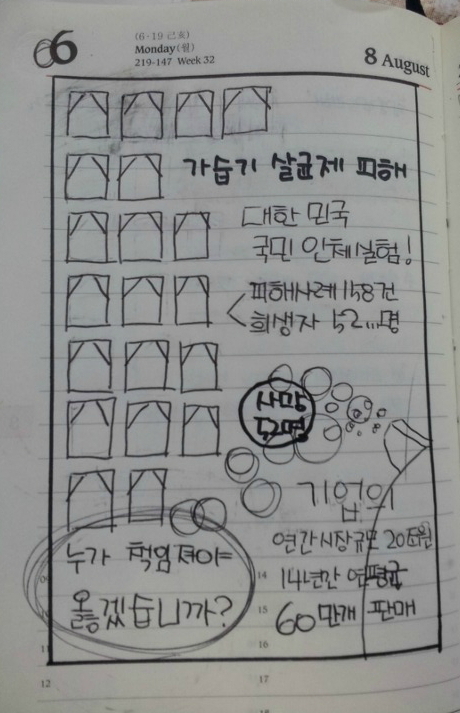 6
(6·19 己亥)
Monday(월)
219-147 Week 32
8 August
가습기 살균제 피해
대한민국
국민 인체실험!
피해사례 158건
희생자 52...명
사망
52명
기업의
연간시장규모
14년간 연평균
60만개 판매
누가 책임져야
옳겠습니까?
14
15
16
11
12
17